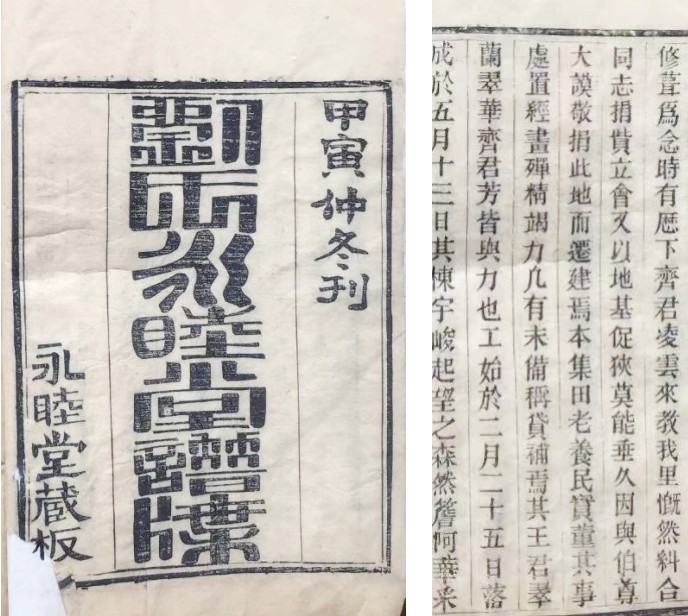 甲寅仲冬刊
劉氏永睦堂譜牒
永睦堂藏板
修葺爲念時有厯下齊君凌雲來教我里慨然糾合
同志捐貲立會又以地基促狹莫能垂久因與伯尊
大謨敬捐此地而遷建焉本集田老養民實董其事
處置經畫殫精竭力凡有未備稱貸補焉其王君翠
蘭翠華齊君芳皆與力也工始於二月二十五日落
成於五月十三日其棟宇峻起望之森然簷阿華采